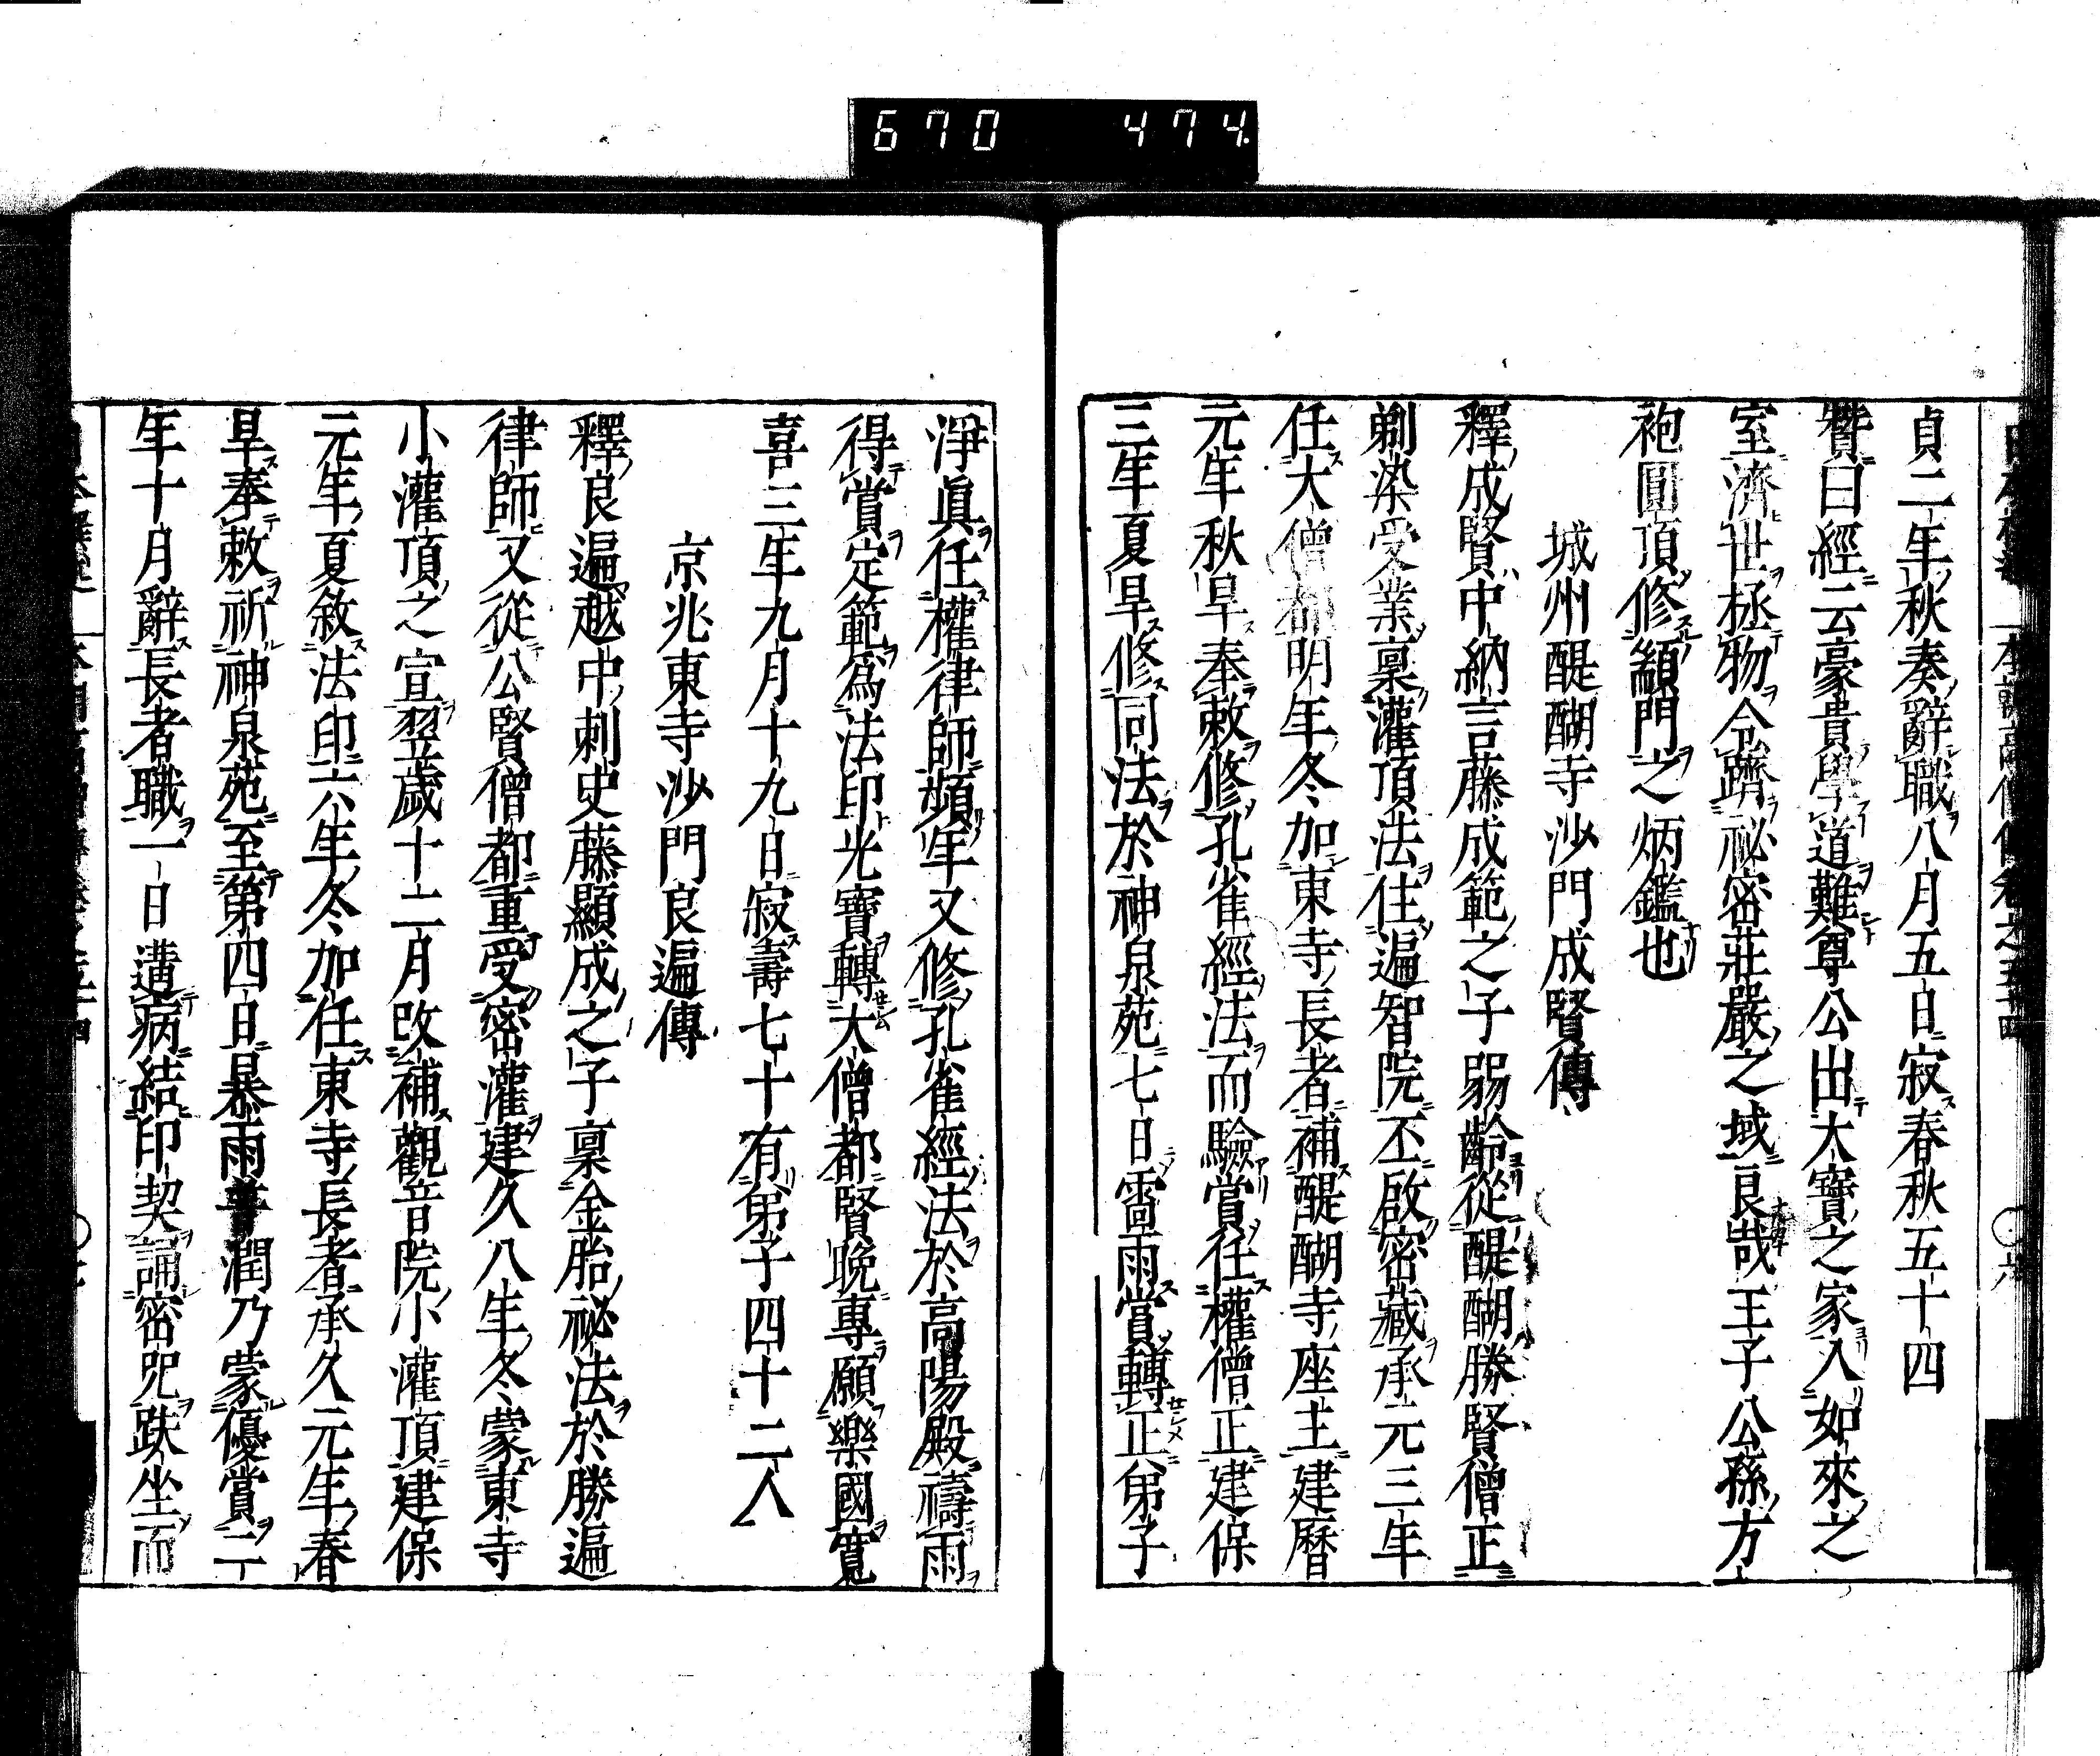 670 474
貞二年秋奏辭職八月五日寂春秋五十四
贊曰經云豪貴學道難尊公出大寶之家入如來之
室濟世拯物令躋祕密莊嚴之域良哉王子公孫方
袍圓頂修顓門之炳鑑也
城州醍醐寺沙門成賢傳
釋成賢中納言藤成範之子弱齡從醍醐勝賢僧正
剃染受業稟灌頂法住遍智院丕啟密藏承元三年
任大僧都明年冬加東寺長者補醍醐寺座主建曆
元年秋旱奉敕修孔雀經法而驗賞任權僧正建保
三年夏旱修同法於神泉苑七日霤雨賞轉正弟子
淨眞任權律師頻年又修孔雀經法於高陽殿禱雨
得賞定範爲法印光寶轉大僧都賢晚專願樂國寬
喜三年九月十九日寂壽七十有弟子四十二人
京兆東寺沙門良遍傳
釋良遍越中刺史藤顯成之子稟金胎祕法於勝遍
律師又從公賢僧都重受密灌建久八年冬蒙東寺
小灌頂之宣翌歲十二月改補觀音院小灌頂建保
元年夏敘法印六年冬加任東寺長者承久元年春
旱奉敕祈神泉苑至第四日暴雨普潤乃蒙優賞二
年十月辭長者職一日遘病結印契誦密咒趺坐而